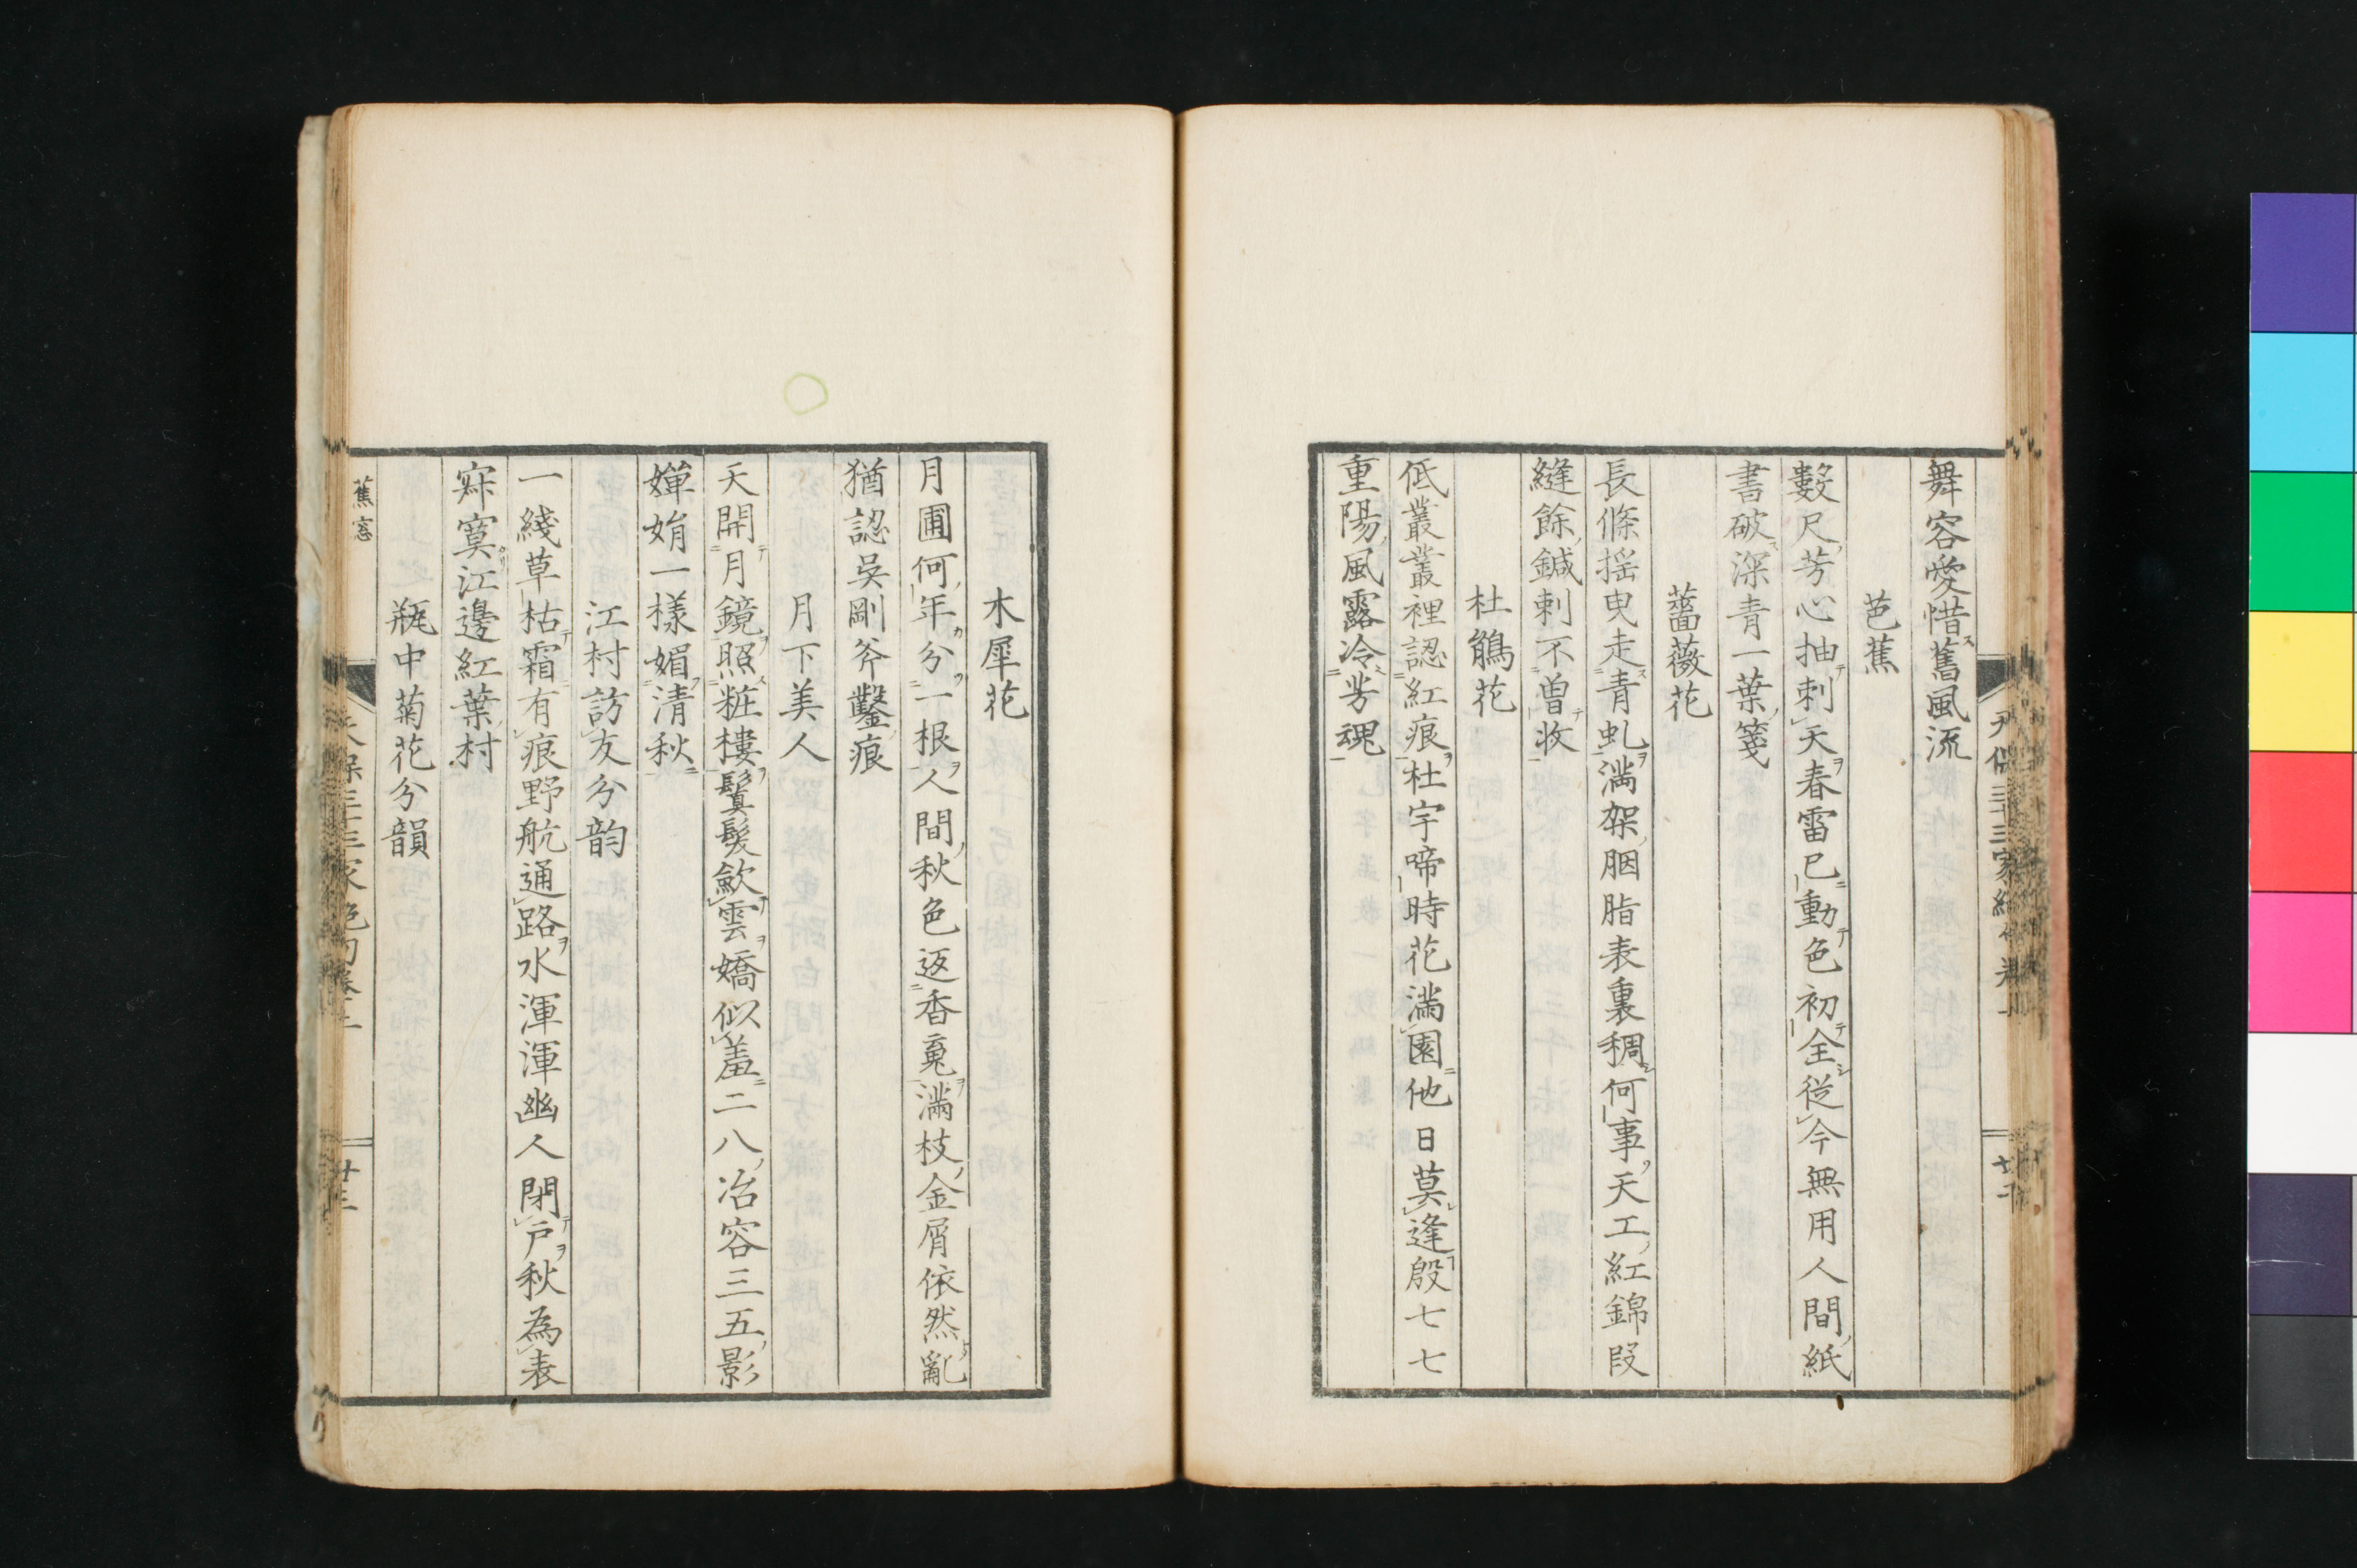 舞容愛惜舊風流
芭蕉
數尺芳心抽刺天春雷已動色初全從今無用人間紙
書破深青一葉箋
薔薇花
長條揺曳走青虬満架胭脂表裏稠何事天工紅錦段
縫餘鍼刺不曽收
杜鵑花
低叢叢裡認紅痕杜宇啼時花満園他日莫逢殷七七
重陽風露冷芳魂
木犀花
月圃何年分一根人間秋色返香䰟满枝金屑依然亂
猶認吳剛斧鑿痕
月下美人
天開月鏡照粧樓鬒髮歛雲嬌似羞二八冶容三五影
嬋娟一樣媚清秋
江村訪友分韵
一綫草枯霜有痕野航通路水渾渾幽人閉戸秋為表
寂寞江邊紅葉村
瓶中菊花分韻
蕉窓
廿三